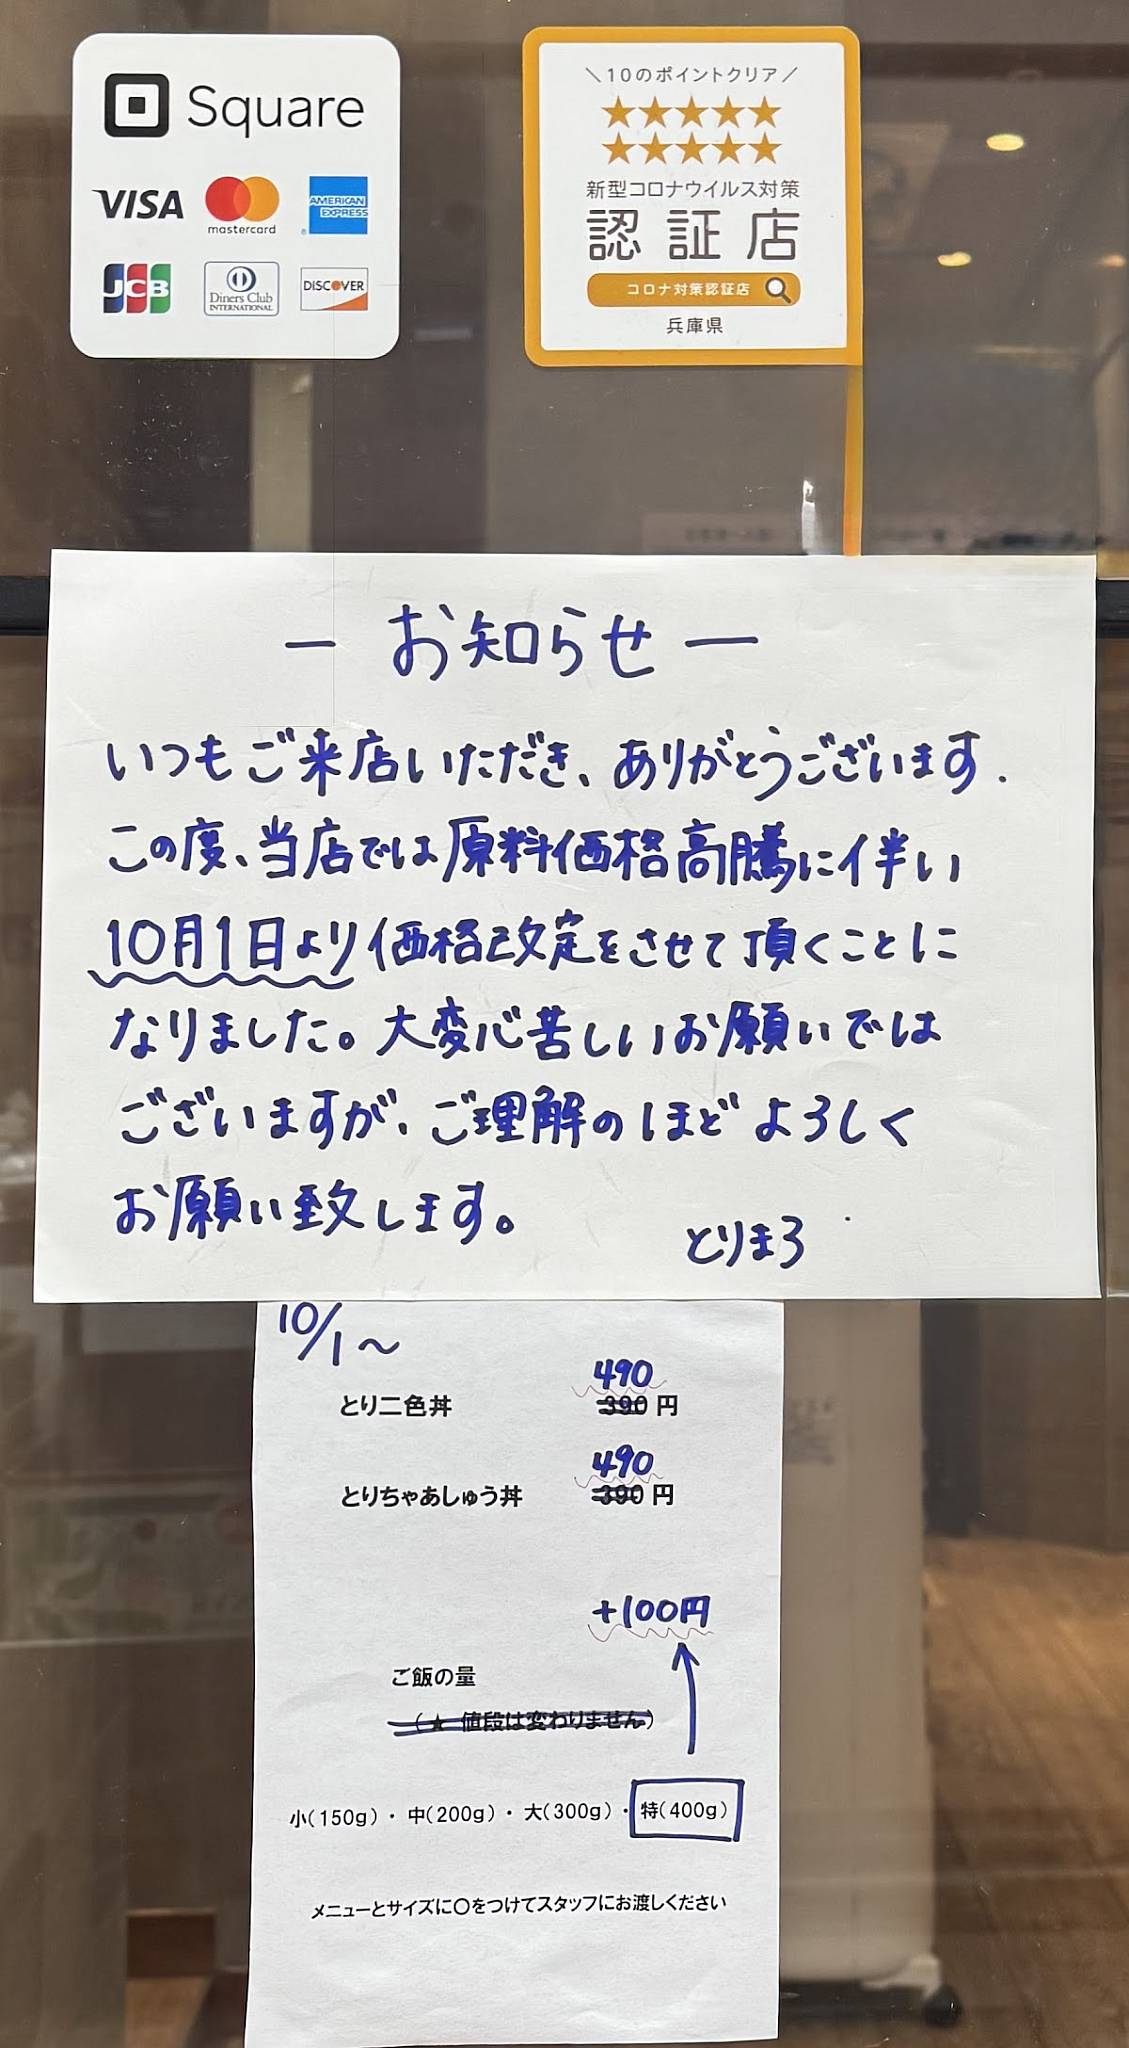 Square
VISA
mastercard
AMERICAN EXPRESS
JCB
Diners Club INTERNATIONAL
DISCOVER
＼10のポイントクリア／
★★★★★
★★★★★
新型コロナウイルス対策
認証店
コロナ対策認証店
兵庫県
ー お知らせ ー
いつもご来店いただき、ありがとうございます.
この度、当店では原料価格高騰に伴い
10月1日より価格改定をさせて頂くことに
なりました。大変心苦しいお願いでは
ございますが、ご理解のほどよろしく
お願い致します。
とりまろ
10/1~
490
とり二色丼 390円
490
とりちゃあしゅう丼 390円
+100円
ご飯の量
(★ 値段は変わりません)
小(150g)・中(200g)・大(300g)・特(400g)
メニューとサイズに〇をつけてスタッフにお渡しください